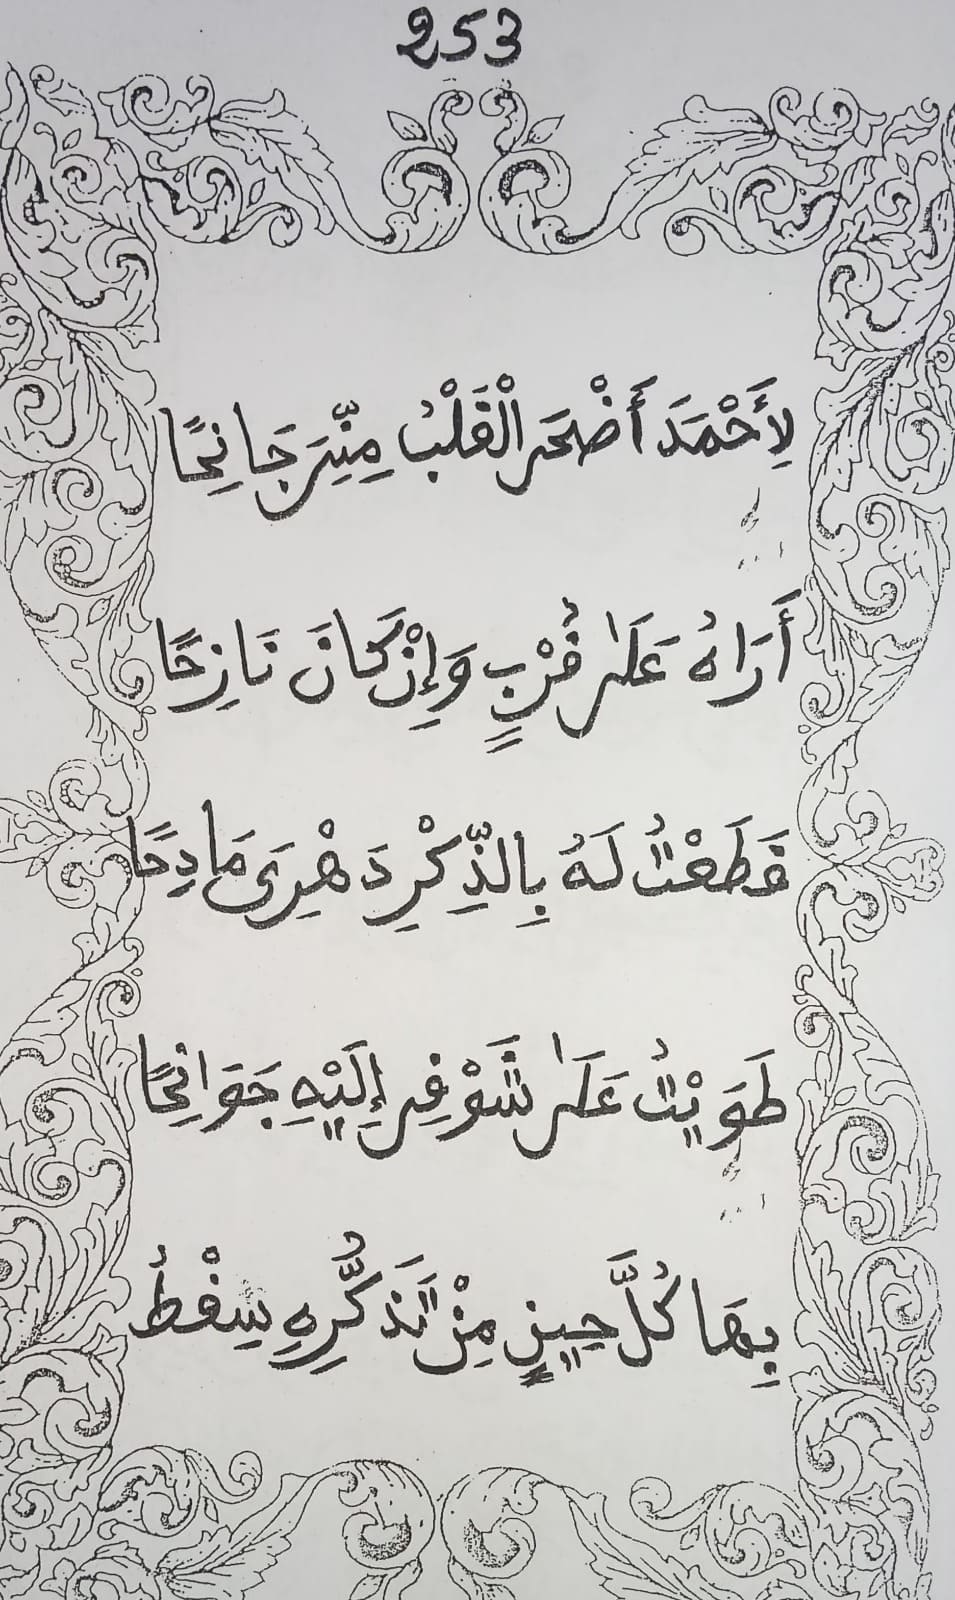 253
لِأَحْمَدَ أَضْحَى الْقَلْبُ مِنِّيَ جَانِحًا
أَرَاهُ عَلَى قُرْبٍ وَإِنْ كَانَ نَازِحًا
قَطَعْتُ لَهُ بِالذِّكْرِ دَهْرِى مَادِحًا
طَوَيْتُ عَلَى شَوْقِي إِلَيْهِ جَوَانِحًا
بِهَا كُلَّ حِينٍ مِنْ تَذَكُّرِهِ سِقْطُ